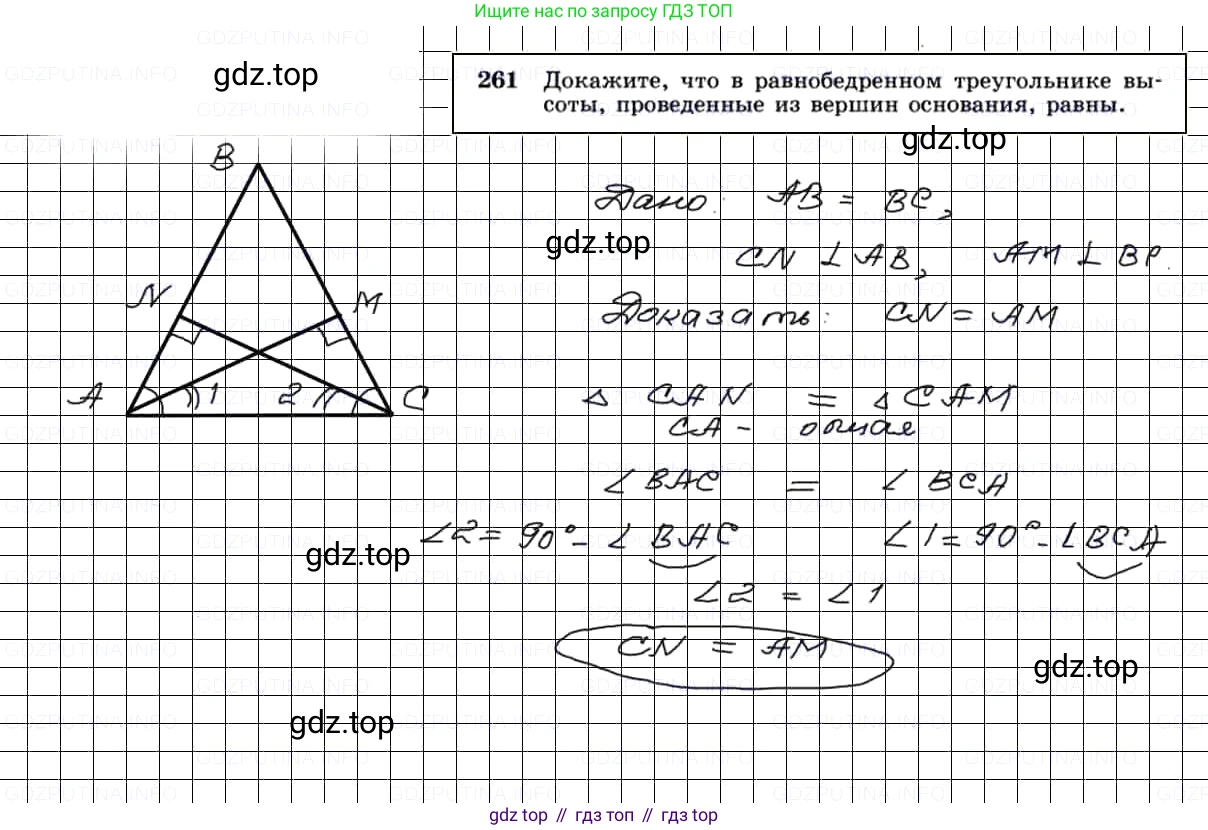 Ищите нас по запросу ГДЗ ТОП
gdz.top
261 Докажите, что в равнобедренном треугольнике вы-
соты, проведенные из вершин основания, равны.
gdz.top
B
Дано: AB = BC,
gdz.top
CN ⊥ AB, AM ⊥ BP.
N M
Доказать: CN = AM
A 1 2 C
△ CAN = △ CAM
CA - общая
∠ BAC = ∠ BCA
∠2 = 90° - ∠ BAC ∠1 = 90° - ∠BCA
gdz.top
∠2 = ∠1
CN = AM
gdz.top
gdz.top
gdz.top // гдз топ // гдз.top